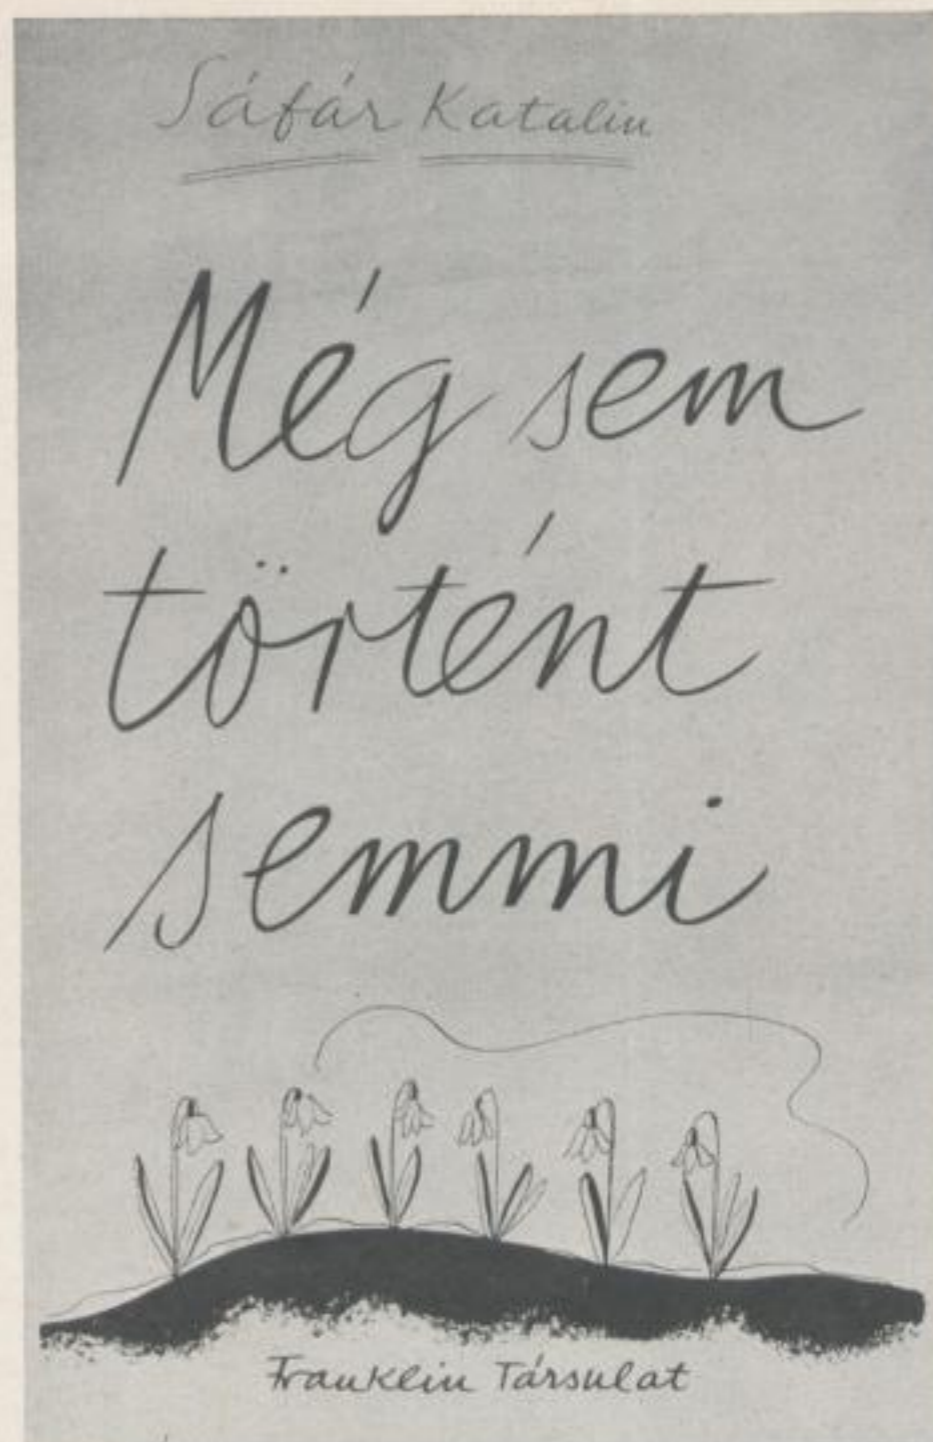 Sáfár Katalin
Még sem
történt
semmi
Franklin Társulat